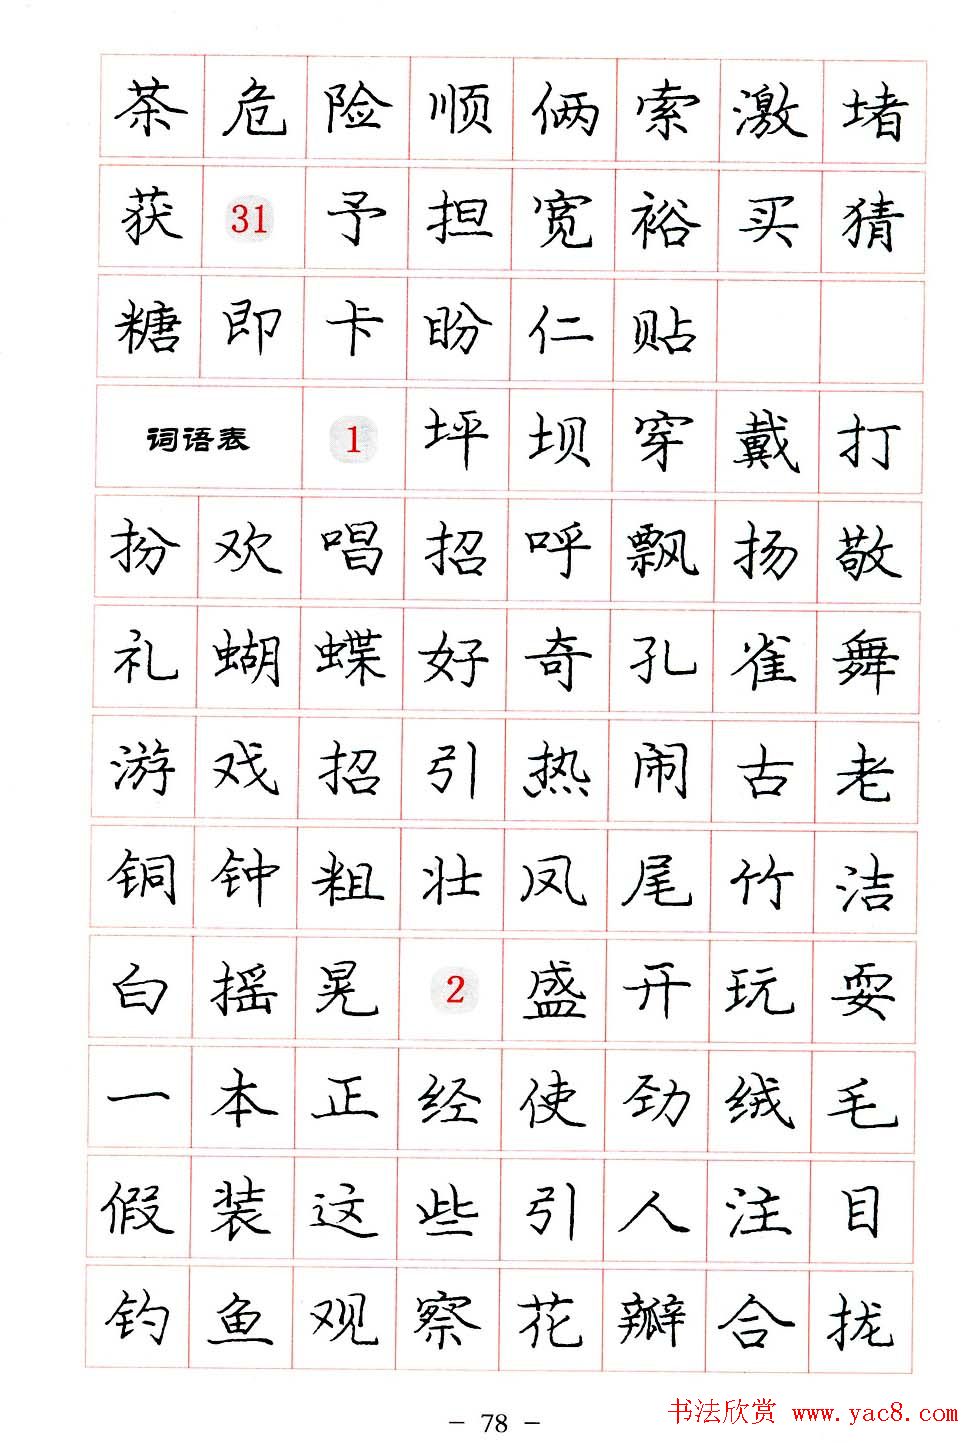 茶 危 险 顺 俩 索 激 堵
获 31 予 担 宽 裕 买 猜
糖 即 卡 盼 仁 贴
词语表 1 坪 坝 穿 戴 打
扮 欢 唱 招 呼 飘 扬 敬
礼 蝴 蝶 好 奇 孔 雀 舞
游 戏 招 引 热 闹 古 老
铜 钟 粗 壮 凤 尾 竹 洁
白 摇 晃 2 盛 开 玩 耍
一 本 正 经 使 劲 绒 毛
假 装 这 些 引 人 注 目
钓 鱼 观 察 花 瓣 合 拢
- 78 -
书法欣赏 www.yac8.com